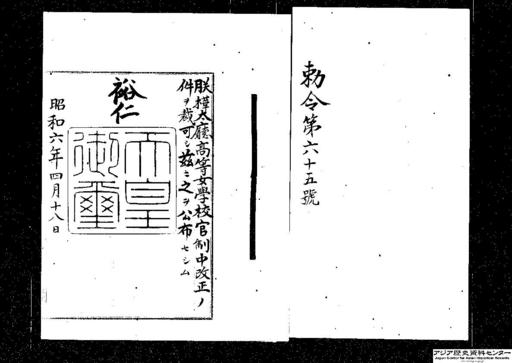 勅令第六十五號
朕樺太廳高等女學校官制中改正ノ
件ヲ裁可シ茲ニ之ヲ公布セシム
裕仁
天皇
御璽
昭和六年四月十八日
アジア歴史資料センター
Japan Center for Asian Historical Records